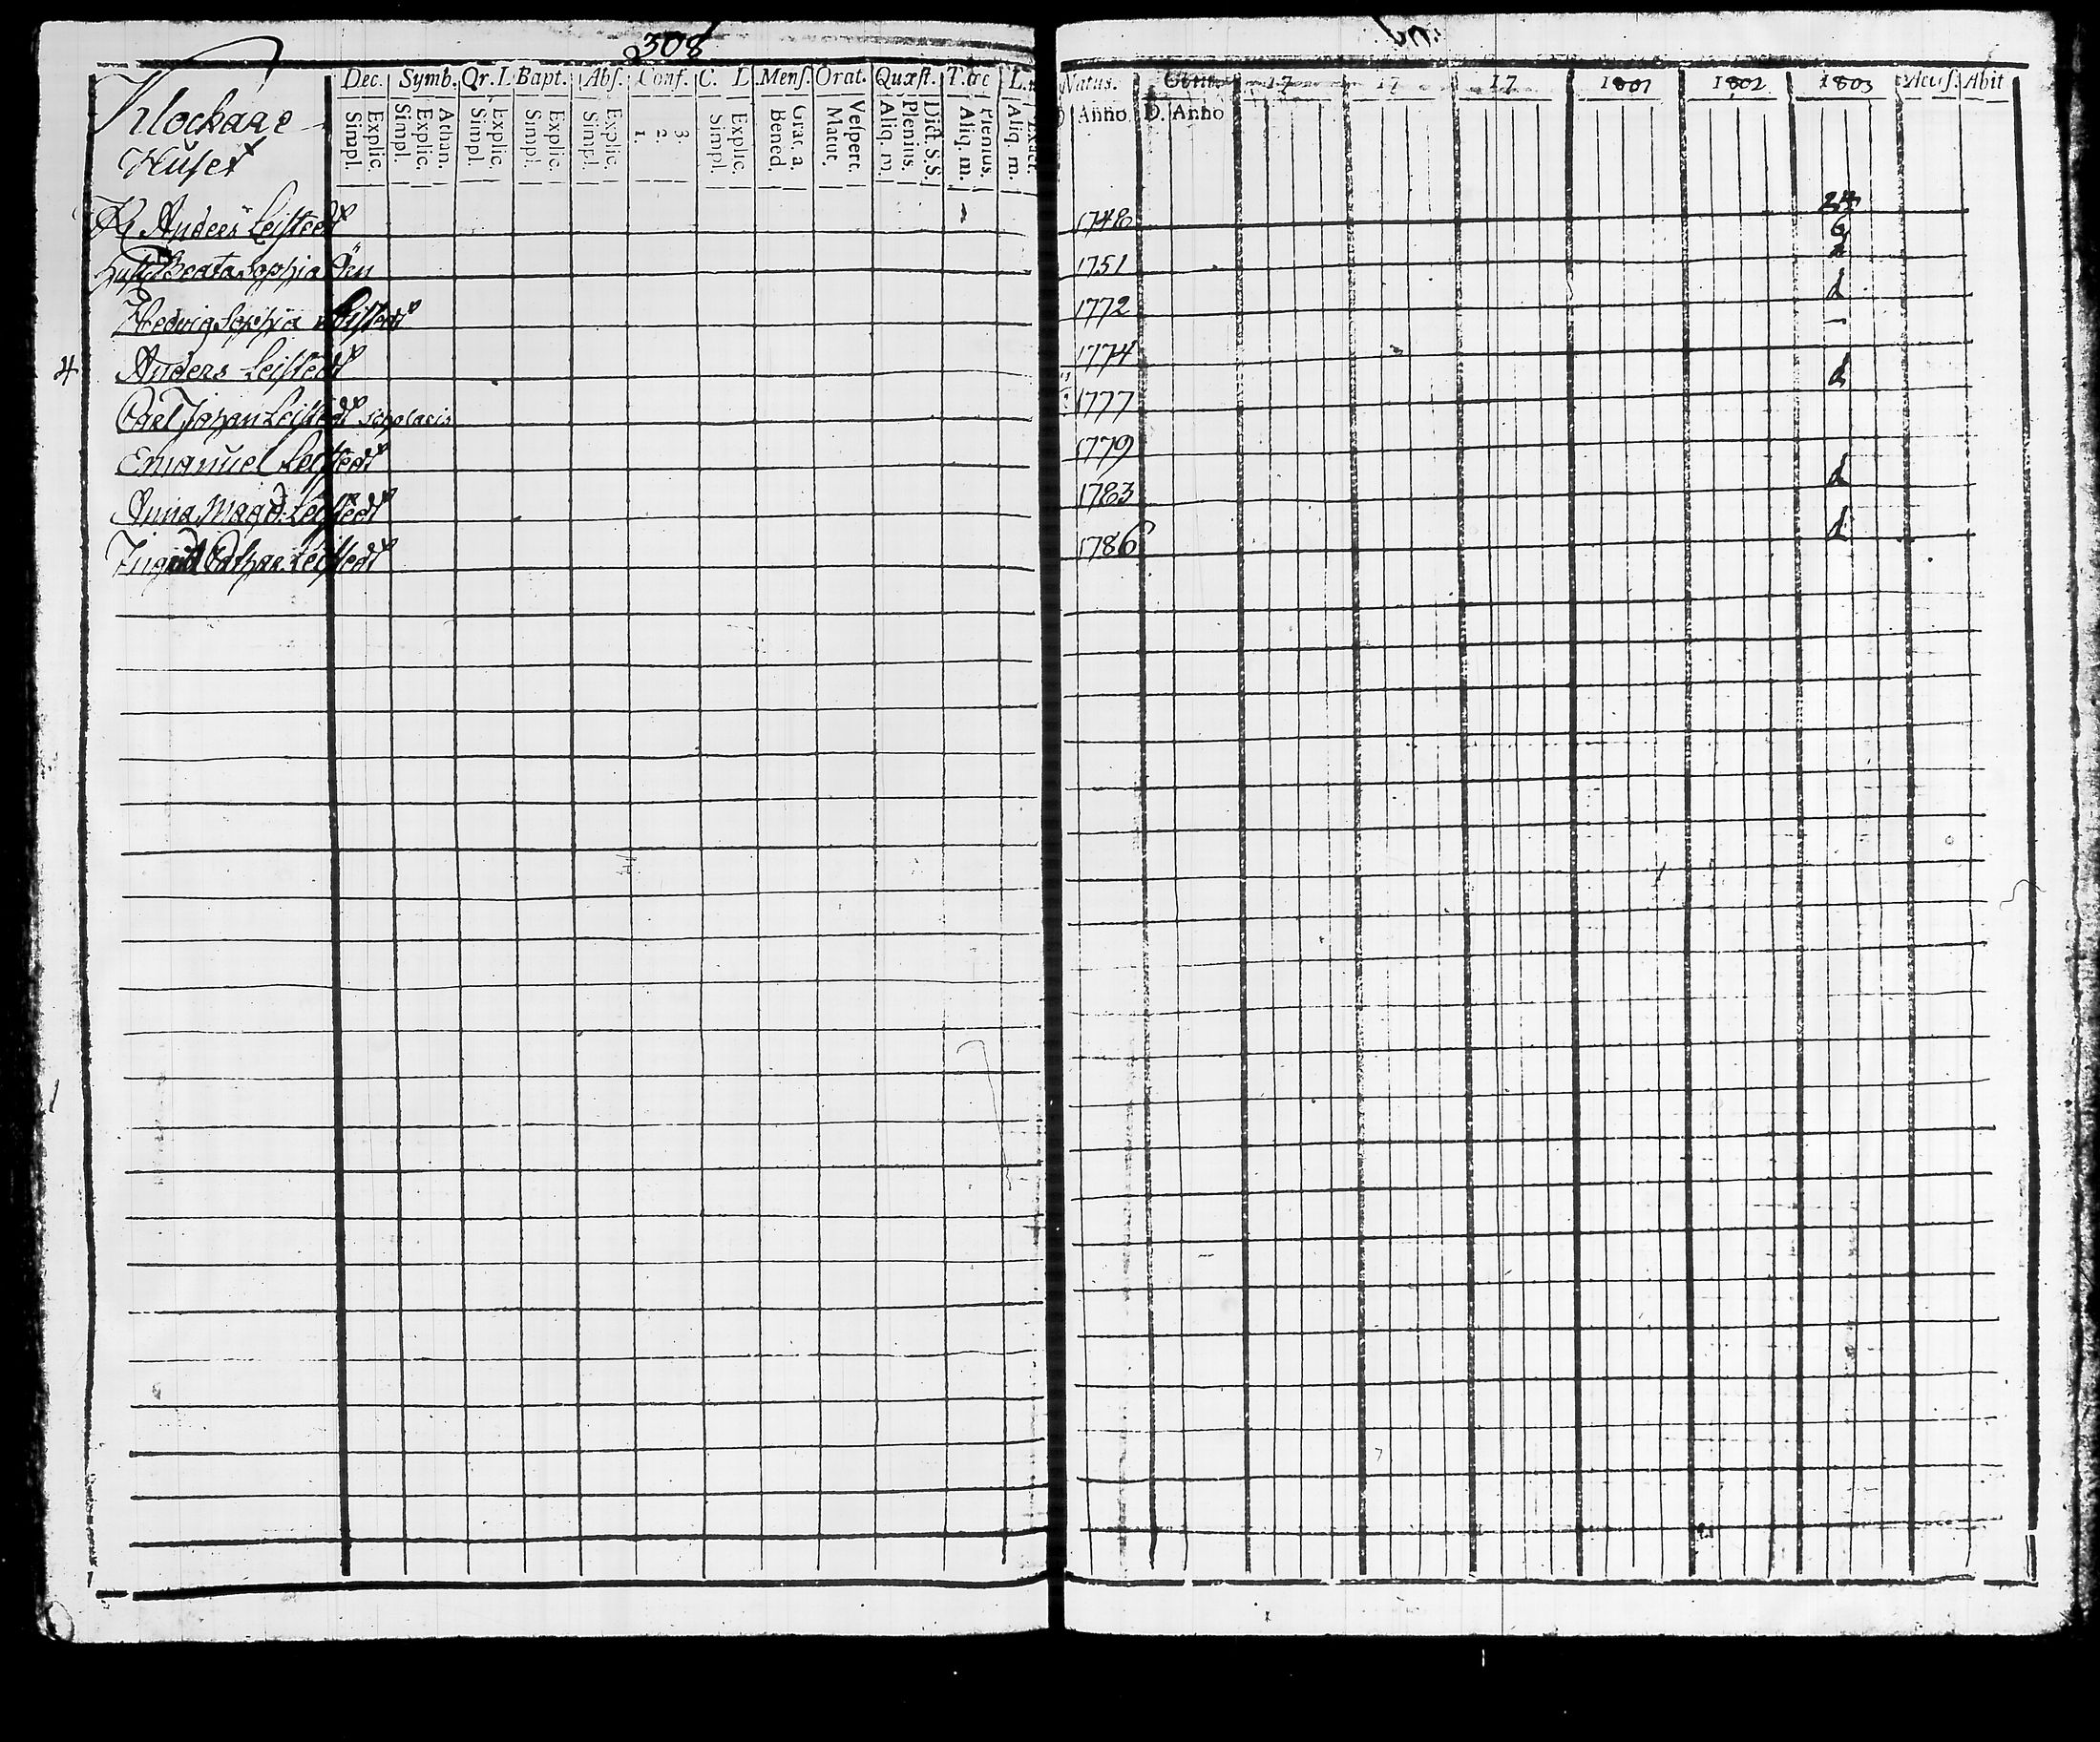 308
Klockare
Huset
Dec. Symb. Qr. L Bapt. Abſ. Conf. C. L Menſ. Orat. Quæſt. T. œc L.
Simpl. Explic. Simpl. Explic. Athan. Simpl. Explic. Simpl. Explic. Simpl. Explic. 1. 2. 3. Simpl. Explic. Bened. Grat. a. Matut. Veſpert. Aliq. m. Plenius. Dict. S.S. Aliq. m. Plenius. Aliq. m. Exact.
Natus. Obiit 17 17 17 1801 1802 1803 Acuſ. Abit
Anno D. Anno
Kl Anders Leiſtedt 1748 24 6
Huſtr Beata Sophia 1751 d
Hedvig Sophia Leiſtedt 1772 d
4 Anders Leiſtedt 1774 –
Carl Johan Leiſtedt Scholaris 1777 d
Emanuel Leiſtedt 1779
Anna Magd: Leiſtedt 1783 d
Ingrid Cathar. Leiſtedt 1786 d